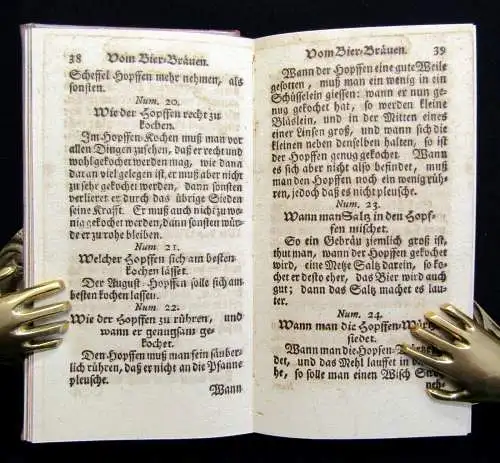 38 Vom Bier-Bräuen.
Scheffel Hopffen mehr nehmen, als
sonsten.
Num. 20.
Wie der Hopffen recht zu
kochen.
Im Hopffen-Kochen muß man vor
allen Dingen zusehen, daß er recht und
wohl gekochet werden mag, wie dann
dar an viel gelegen ist, er muß aber nicht
zu sehr gekochet werden, dann sonsten
verlieret er durch das übrige Sieden
seine Krafft. Er muß auch nicht zu we-
nig gekochet werden, dann sonsten wür-
de er zu rohe bleiben.
Num. 21.
Welcher Hopffen sich am besten
kochen lässet.
Der August-Hopffen solle sich am
besten kochen lassen.
Num. 22.
Wie der Hopffen zu rühren, und
wann er genugsam ge-
kochet.
Den Hopffen muß man sein säuber-
lich rühren, daß er nicht an die Pfanne
pleusche.
Wann
Vom Bier-Bräuen. 39
Wann der Hopffen eine gute Weile
gesotten, muß man ein wenig in ein
Schüsselein giessen: wann er nun ge-
nug gekochet hat, so werden kleine
Bläslein, und in der Mitten eines
einer Linsen groß, und wann sich die
kleinen neben denselben halten, so ist
der Hopffen genug gekochet. Wann
es sich aber nicht also befindet, muß
man den Hopffen noch ein wenig rüh-
ren, jedoch daß es nicht pleusche.
Num. 23.
Wann man Saltz in den Hopf-
fen mischet.
So ein Gebräu ziemlich groß ist,
thut man, wann der Hopffen gekochet
wird, eine Metze Saltz darein, so ko-
chet er desto eher, das Bier wird auch
gut; dann das Saltz machet es lau-
ter.
Num. 24.
Wann man die Hopffen-Würtz
siedet.
Wann man die Hopfen-Würtze
det, und das Mehl lauffet in
he, so solle man einen Wisch
neh-